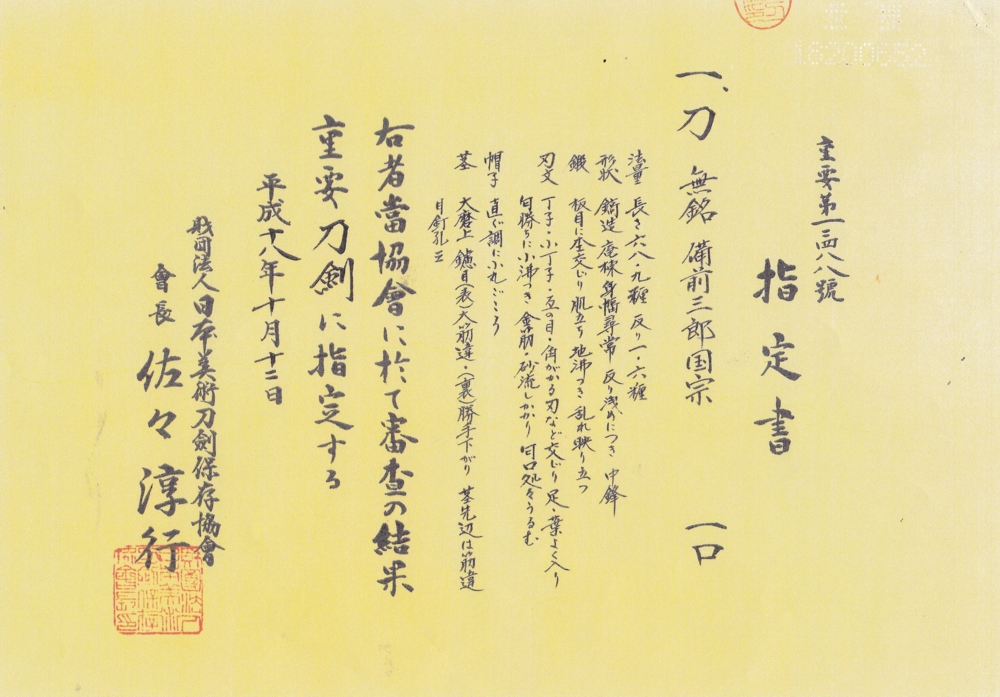 重要第一三四八八號
指定書
一、刀 無銘 備前三郎国宗 一口
法量 長さ六八・九糎 反り一・六糎
形状 鎬造 庵棟 身幅尋常 反り浅めにつき 中鋒
鍛 板目に杢交じり 肌立ち 地沸つき 乱れ映り立つ
刃文 丁子・小丁子・互の目・角がかる刃など交じり 足・葉よく入り
匂勝ちに小沸つき 金筋・砂流しかかり 匂口処々うるむ
帽子 直ぐ調に小丸ごころ
茎 大磨上 鑢目(表)大筋違・(裏)勝手下がり 茎先辺は筋違
目釘孔三
右者當協會に於て審査の結果
重要刀劍に指定する
平成十八年十月十二日
財団法人日本美術刀劍保存協會
會長 佐々淳行
18200652